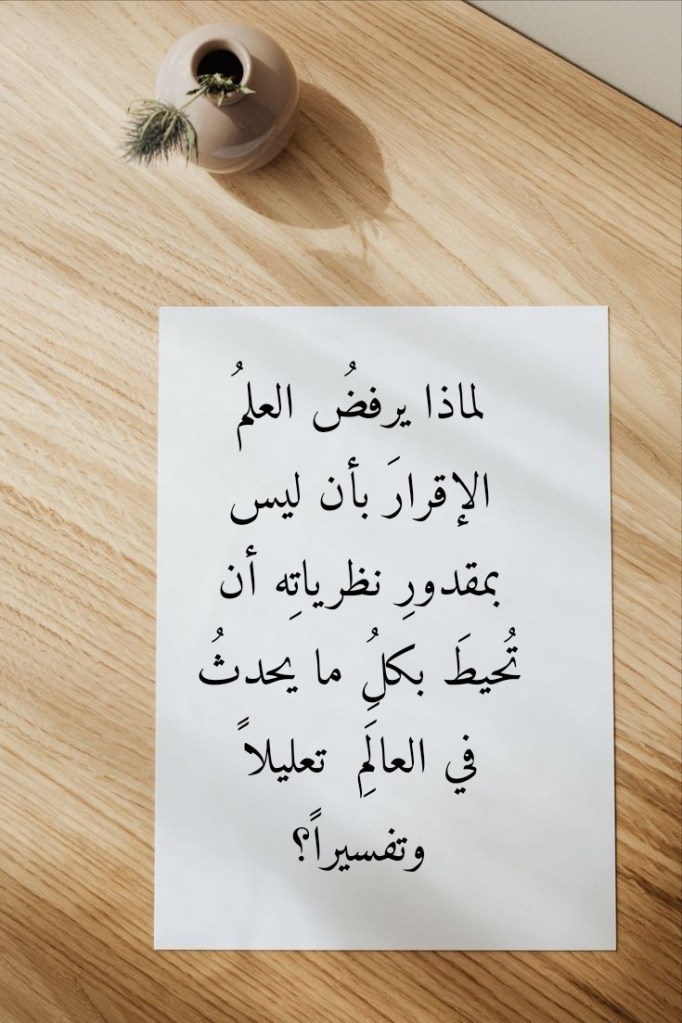 لماذا يرفضُ العلمُ
الإقرارَ بأن ليس
بمقدورِ نظرياتِه أن
تُحيطَ بكلُِ ما يحدثُ
في العالَمِ تعليلاً
وتفسيراً؟